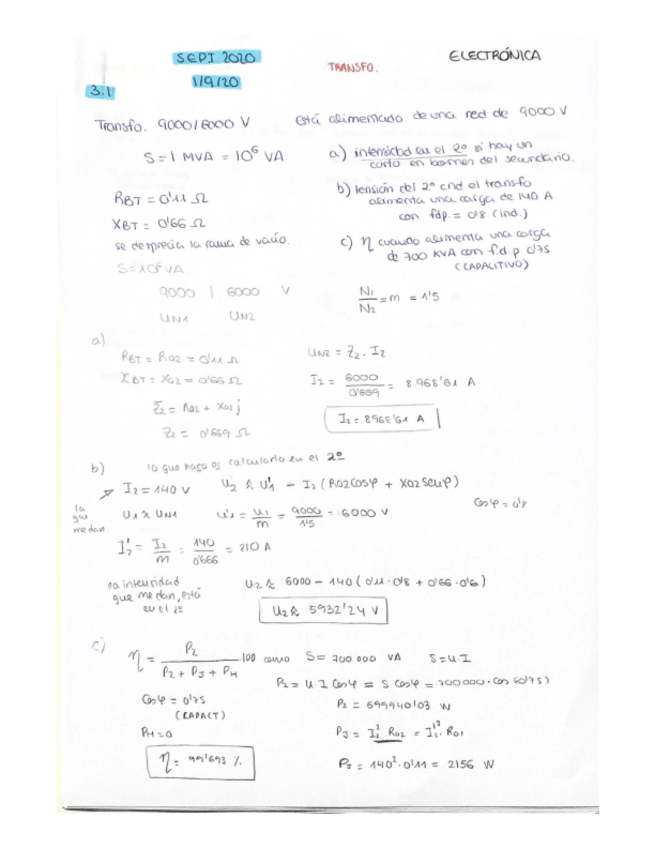 SEPT 2020
ELECTRÓNICA
TRANSFO.
1/9/20
3.1
Transfo. 9000/6000 V
está alimentado de una red de 9000 V
S = 1 MVA = 10⁶ VA
a) intensidad en el 2º si hay un
corto en bornes del secundario.
R_BT = 0'11 Ω
X_BT = 0'66 Ω
se desprecia la rama de vacío.
b) tensión del 2º cnd el transfo
alimenta una carga de 140 A
con fdp. = 0'8 (ind.)
c) η cuando alimenta una carga
de 700 KVA con f.d.p 0'75
(CAPACITIVO)
S = 10⁶ VA
9000 | 6000 V
U_N1 U_N2
N₁/N₂ = m = 1'5
a)
R_BT = R_02 = 0'11 Ω
X_BT = X_02 = 0'66 Ω
Z̄₂ = R_02 + X_02 j
Z₂ = 0'669 Ω
U_N2 = Z₂ · I₂
I₂ = 6000/0'669 = 8968'61 A
I₂ = 8968'61 A
b) lo que hago es calcularlo en el 2º
I₂ = 140 V U₂ ≈ U'₁ - I₂ (R_02 cosφ + X_02 senφ)
la que me dan.
Cosφ = 0'8
U₁ ≈ U_N1 U'₁ = U₁/m = 9000/1'5 = 6000 V
I'₂ = I₂/m = 140/0'666 = 210 A
la intensidad
que me dan, está
en el 2º
U₂ ≈ 6000 - 140 (0'11 · 0'8 + 0'66 · 0'6)
U₂ ≈ 5932'24 V
c) η = P₂/(P₂ + P_J + P_H) · 100 como S = 700.000 VA S = U·I
P₂ = U · I Cosφ = S cosφ = 700000 · cos(0'75)
Cosφ = 0'75
(CAPACT)
P₂ = 699940'03 W
P_H = 0
P_J = I₂² · R_02 = I₁'² · R_01
η = 99'693 %
P_J = 140² · 0'11 = 2156 W